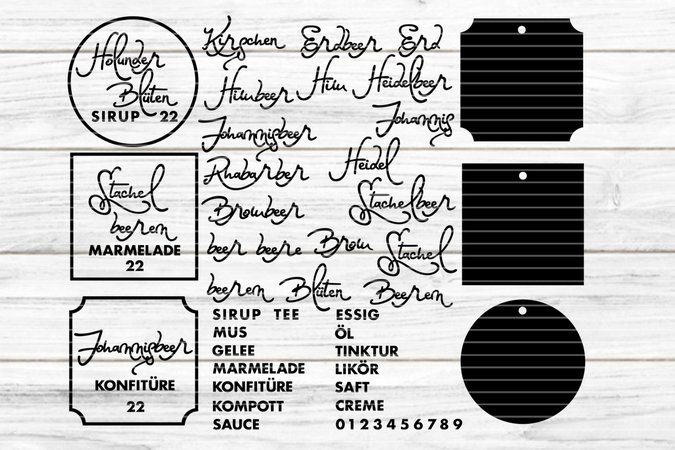 Holunder
Blüten
SIRUP 22
Stachel
beeren
MARMELADE
22
Johannisbeer
KONFITÜRE
22
Kirschen Erdbeer Erd
Himbeer Him Heidelbeer
Johannisbeer Johannis
Rhabarber Heidel
Brombeer Stachelbeer
beer beere Brom Stachel
beeren Blüten Beeren
SIRUP TEE ESSIG
MUS ÖL
GELEE TINKTUR
MARMELADE LIKÖR
KONFITÜRE SAFT
KOMPOTT CREME
SAUCE 0123456789